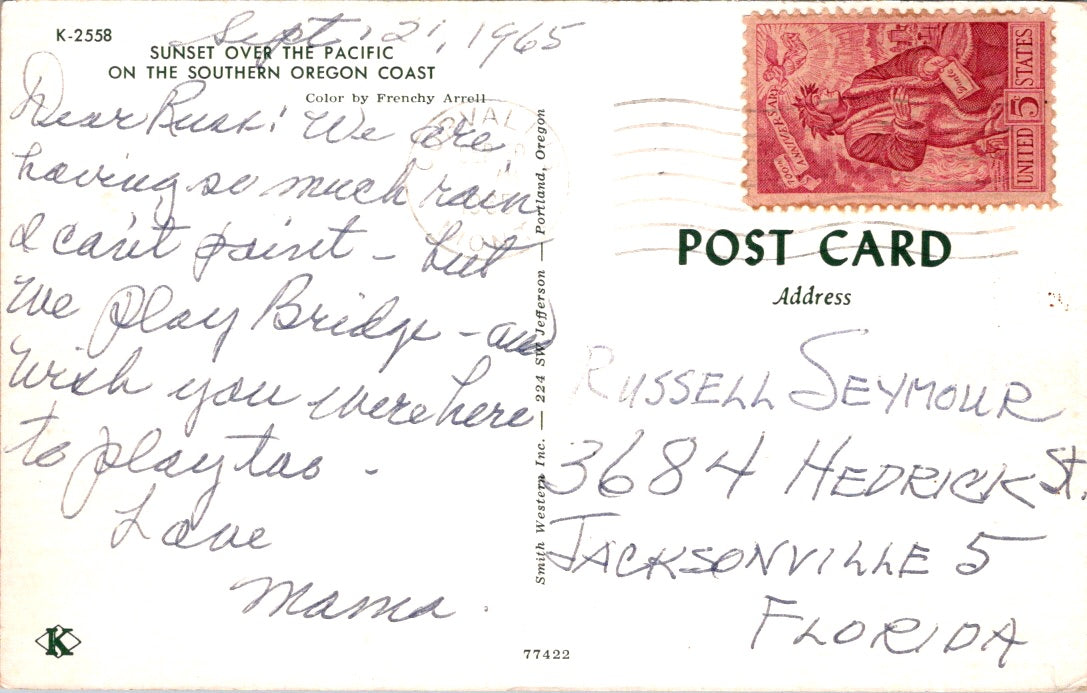 K-2558
Sept. 21, 1965
SUNSET OVER THE PACIFIC
ON THE SOUTHERN OREGON COAST
Color by Frenchy Arrell
Dear Russ: We are
having so much rain
I can't paint - but
we play Bridge - and
wish you were here
to play too -
Love
Mama.
K
77422
Smith Western Inc. — 224 SW Jefferson — Portland, Oregon
700TH ANNIVERSARY
Dante
UNITED 5¢ STATES
POST CARD
Address
RUSSELL SEYMOUR
3684 HEDRICK St.
JACKSONVILLE 5
FLORIDA